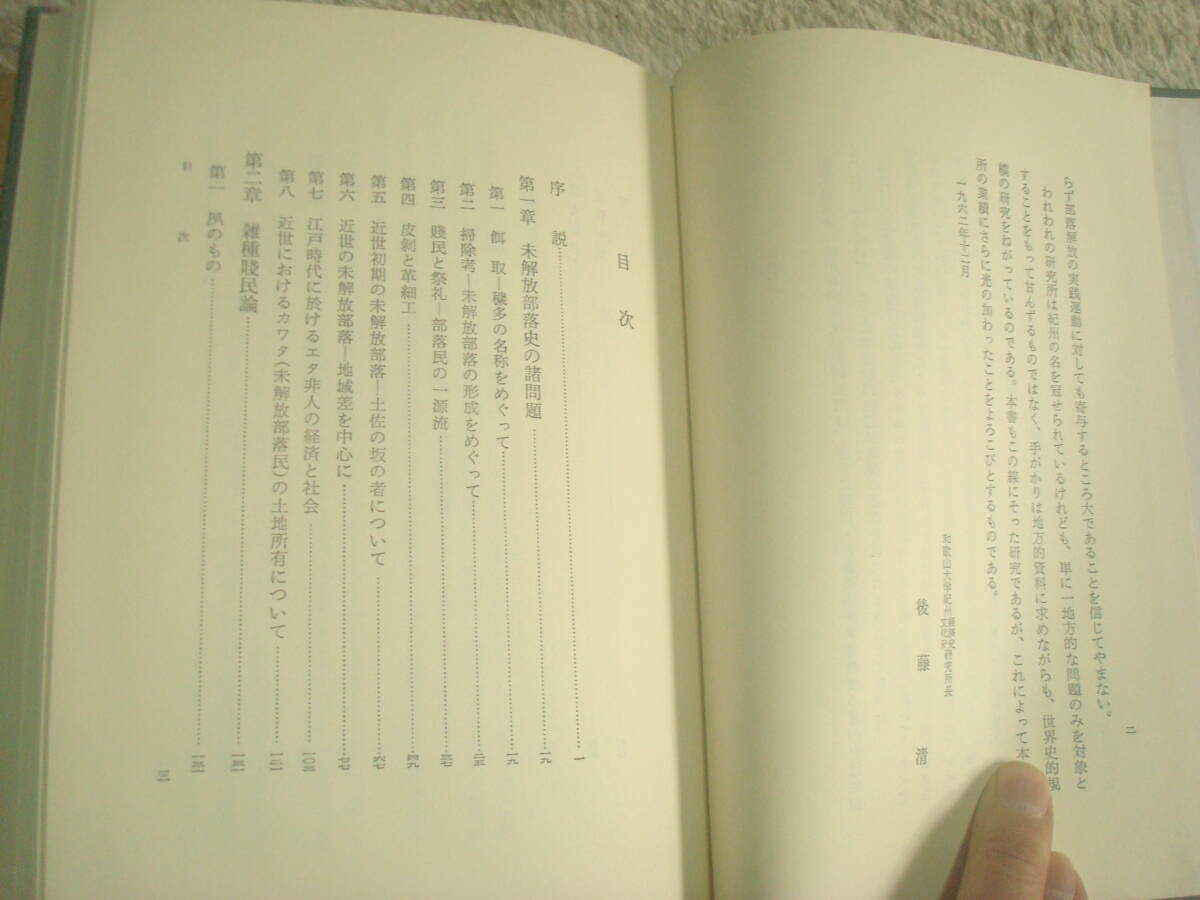 らず部落解放の実践運動に対しても寄与するところ大であることを信じてやまない。
われわれの研究所は紀州の名を冠せられているけれども、単に一地方的な問題のみを対象と
することをもって甘んずるものではなく、手がかりは地方的資料に求めながらも、世界史的規
模の研究をねがっているのである。本書もこの線にそった研究であるが、これによって本
所の業績にさらに光の加わったことをよろこびとするものである。
一九六二年十二月
和歌山大学紀州経済史文化史研究所長
後藤清
二
目次
序説……一
第一章 未解放部落史の諸問題……一九
第一 餌取―穢多の名称をめぐって……一九
第二 掃除考―未解放部落の形成をめぐって……二五
第三 賤民と祭礼―部落民の一源流……三七
第四 皮剝と革細工……四九
第五 近世初期の未解放部落―土佐の坂の者について……六七
第六 近世の未解放部落―地域差を中心に……七七
第七 江戸時代に於けるエタ非人の経済と社会……一〇三
第八 近世におけるカワタ(未解放部落民)の土地所有について……一二一
第二章 雑種賤民論……一三一
第一 夙のもの……一三一
目次
三